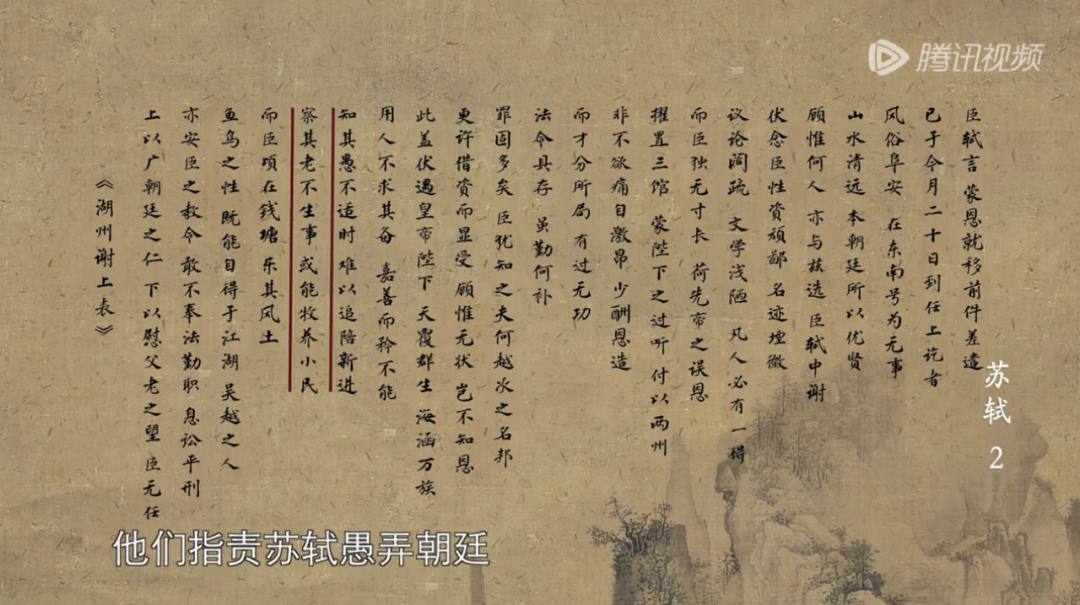 腾讯视频
臣轼言 蒙恩就移前件差遣
已于今月二十日到任上讫者
风俗阜安 在东南号为无事
山水清远 本朝廷所以优贤
顾惟何人 亦与兹选 臣轼中谢
伏念臣性资顽鄙 名迹堙微
议论阔疏 文学浅陋 凡人必有一得
而臣独无寸长 荷先帝之误恩
擢置三馆 蒙陛下之过听 付以两州
非不欲痛自激昂 少酬恩造
而才分所局 有过无功
法令具存 虽勤何补
罪固多矣 臣犹知之夫何越次之名邦
更许借资而显受 顾惟无状 岂不知恩
此盖伏遇皇帝陛下 天覆群生 海涵万族
用人不求其备 嘉善而矜不能
知其愚不适时 难以追陪新进
察其老不生事 或能牧养小民
而臣顷在钱塘 乐其风土
鱼鸟之性 既能自得于江湖 吴越之人
亦安臣之教令 敢不奉法勤职 息讼平刑
上以广朝廷之仁 下以慰父老之望 臣无任
《湖州谢上表》
苏轼 2
他们指责苏轼愚弄朝廷